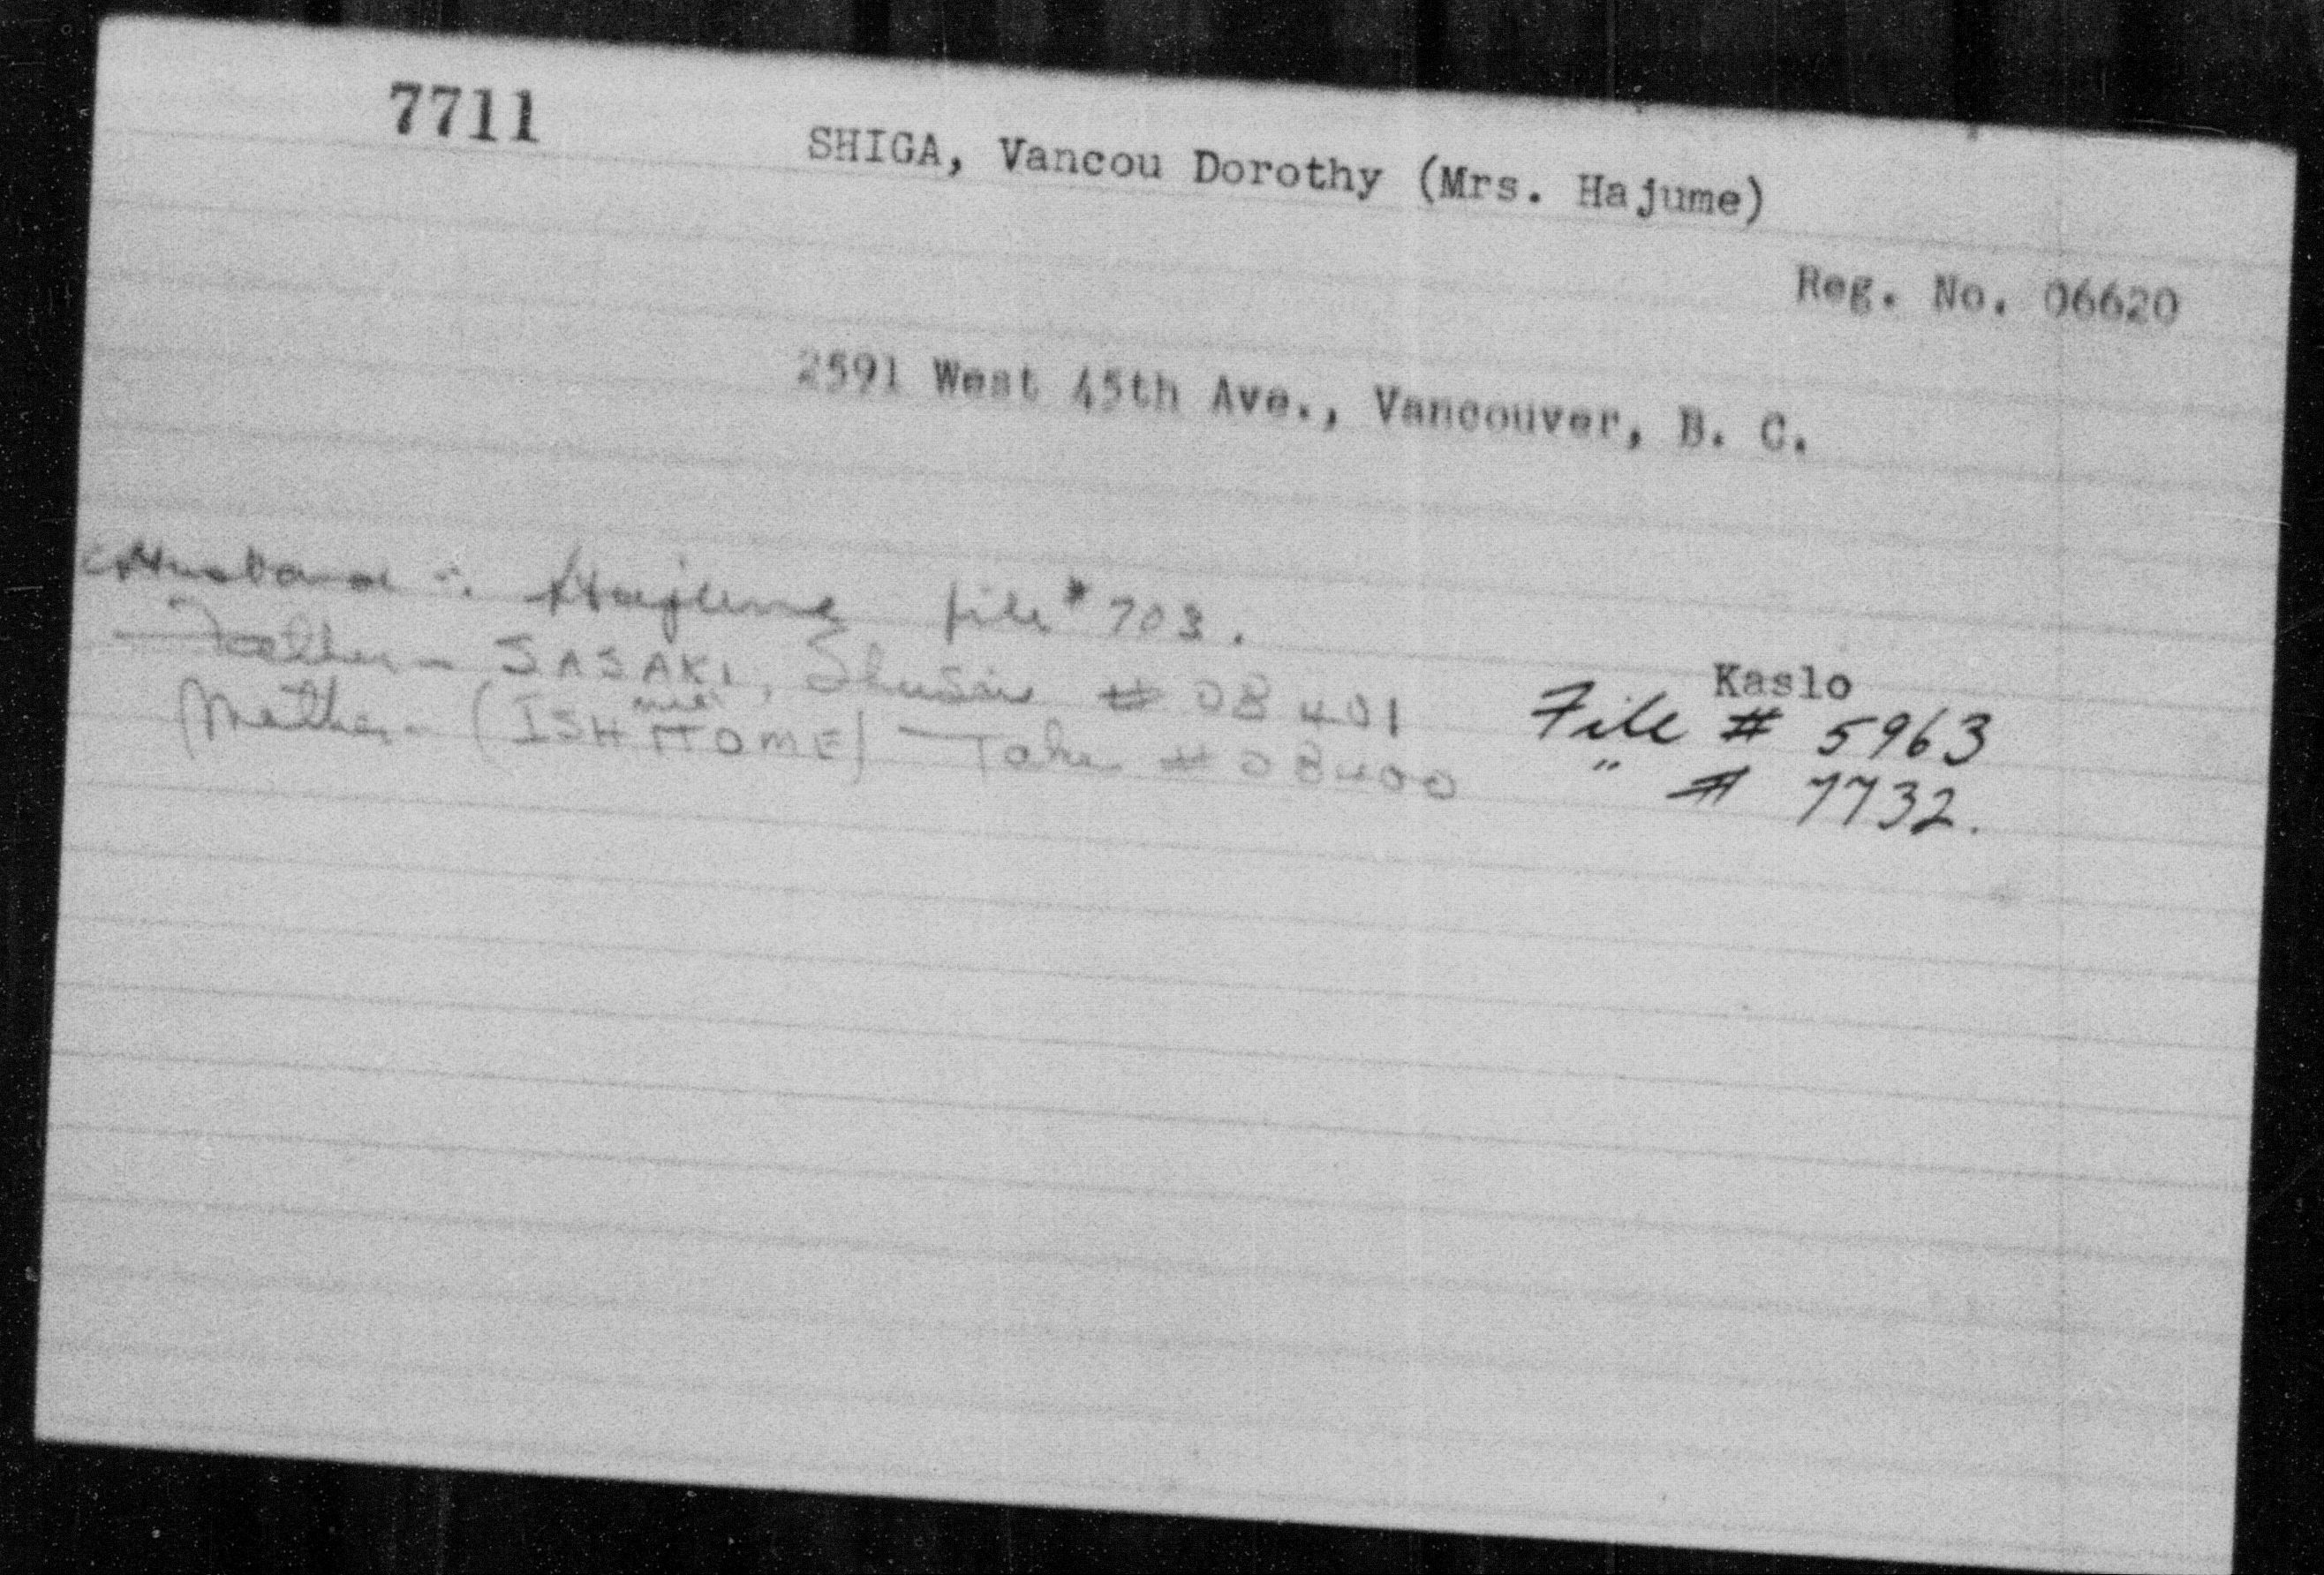 7711
SHIGA, Vancou Dorothy (Mrs. Hajume)
Reg. No. 06620
2591 West 45th Ave., Vancouver, B. C.
Husband -. Hajume file # 703.
Father - SASAKI, # 08401
Mother - (née ISHITOME) # 08400
Kaslo
File # 5963
" # 7732.